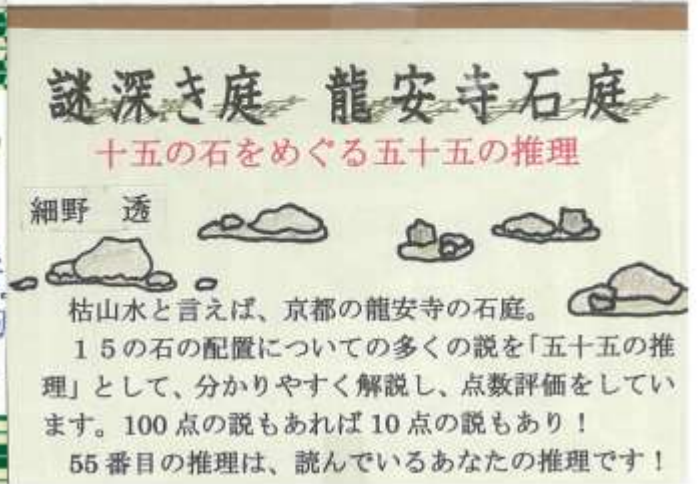 謎深き庭 龍安寺石庭
十五の石をめぐる五十五の推理
細野 透
枯山水と言えば、京都の龍安寺の石庭。
15の石の配置についての多くの説を「五十五の推
理」として、分かりやすく解説し、点数評価をしてい
ます。100点の説もあれば10点の説もあり！
55番目の推理は、読んでいるあなたの推理です！